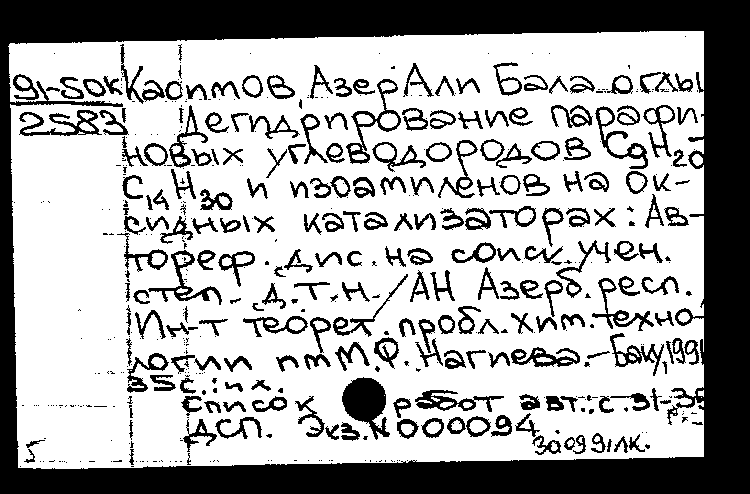 91-50к Касимов, Азер Али Бала оглы
2583 Дегидрирование парафи-
новых углеводородов C9H20-
C14H30 и изоамиленов на ок-
сидных катализаторах: Ав-
тореф. дис. на соиск. учен.
степ. д.т.н. / АН Азерб. респ.,
Ин-т теорет. пробл. хим. техно-
логии им М.Ф. Нагиева.-Баку, 1991
35 с.: их.
Список работ авт.: с. 31-35
ДСП. Экз. N000094.
5